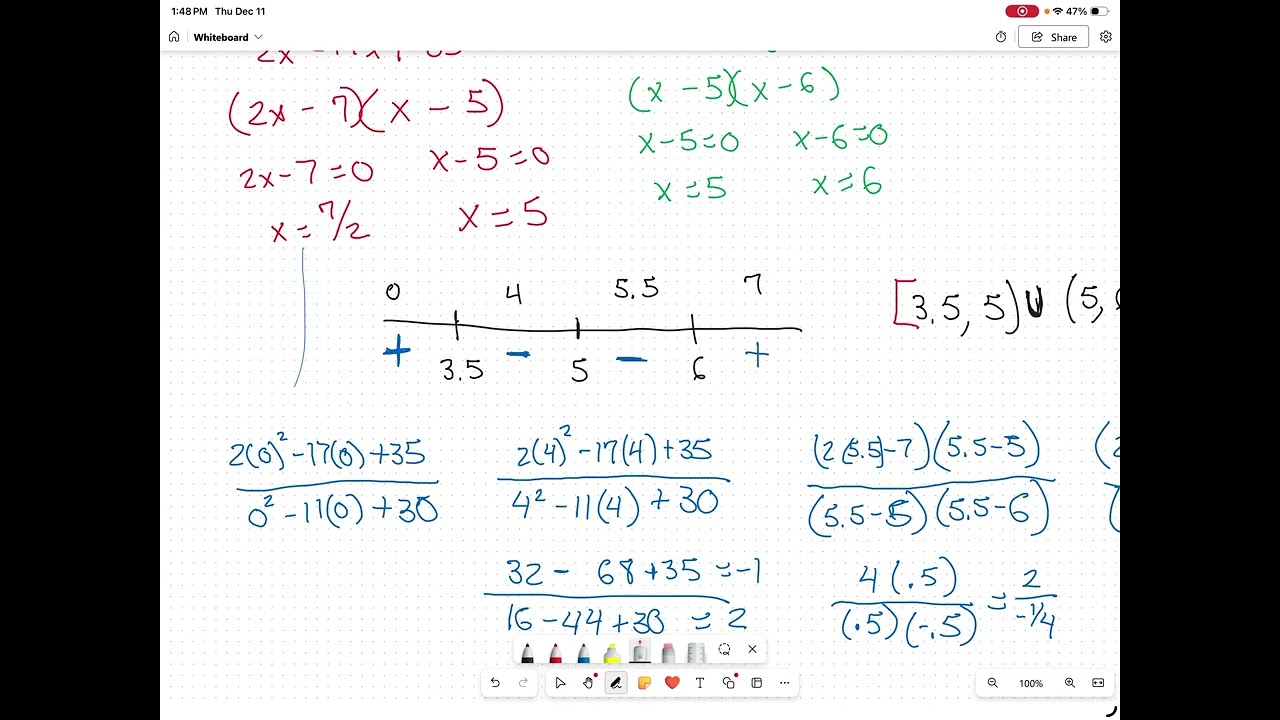 1:48 PM Thu Dec 11
47%
Whiteboard
Share
(2x - 7)(x - 5)
2x-7=0
x-5=0
x=7/2
x=5
(x-5)(x-6)
x-5=0
x-6=0
x=5
x=6
0 4 5.5 7
+ - - +
3.5 5 6
[3.5, 5) U (5,
2(0)²-17(0)+35
0²-11(0)+30
2(4)²-17(4)+35
4²-11(4)+30
(2(5.5)-7)(5.5-5)
(5.5-5)(5.5-6)
32 - 68+35 =-1
16-44+30 = 2
4(.5)
(.5)(-.5)
= 2
-1/4
T
100%